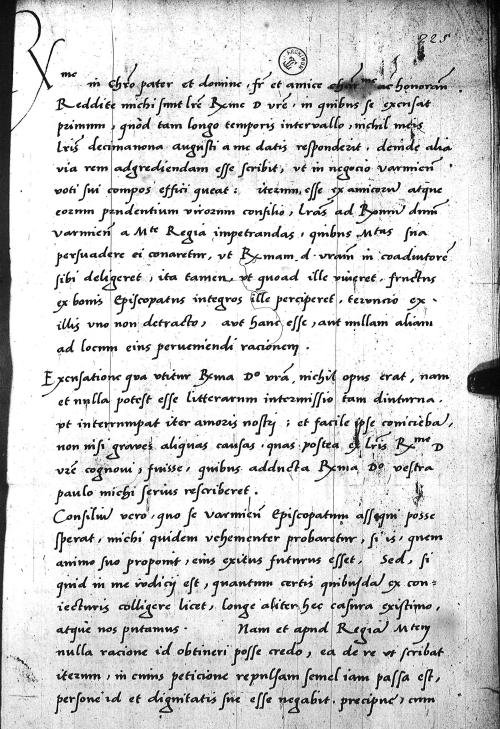 225
R
me in Chro pater et domine, fr et amice ac honoran.
Reddite michi sunt lre Rxme D vre, in quibus se excusat
primum, quòd tam longo temporis intervallo, nichil meis
lris decimanona augusti a me datis responderit. deinde alia
via rem adgrediendam esse scribit, vt in negocio varmien
voti sui compos effici queat: iterum esse ex amicorum atque
eorum prudentium virorum consilio, lras ad Rxmum dnm
varmien a Mte Regia impetrandas, quibus Mtas sua
persuadere ei conaretur, vt Rxmam. d. vram in coadiutore
sibi deligeret, ita tamen, vt quoad ille viueret. fructus
ex bonis Episcopatus integros ille perciperet, teruncio ex
illis vno non detracto, aut hanc esse, aut nullam aliam
ad locum eius perueniendi racionem.
Excusatione qua vtitur Rxma Do vra, nichil opus erat, nam
et nulla potest esse litterarum intermissio tam diuturna.
vt interrumpat iter amoris nostri: et facile ipse conieceba,
non nisi graves aliquas causas, quas postea ex lris Rxme D
vre cognoui, fuisse, quibus adducta Rxma Do vestra
paulo michi serius rescriberet.
Consiliu vero, quo se varmien Episcopatum assequi posse
sperat, michi quidem vehementer probaretur, si is, quem
animo suo proponit, eius exitus futurus esset. Sed, si
quid in me iudicij est, quantum certis quibusda ex con=
iecturis colligere licet, longe aliter hec casura existimo,
atque nos putamus. Nam et apud Regia Mtem
nulla racione id obtineri posse credo, ea de re vt scribat
iterum, in cuius peticione repulsam semel iam passa est,
persone id et dignitatis sue esse negabit. precipue, cum